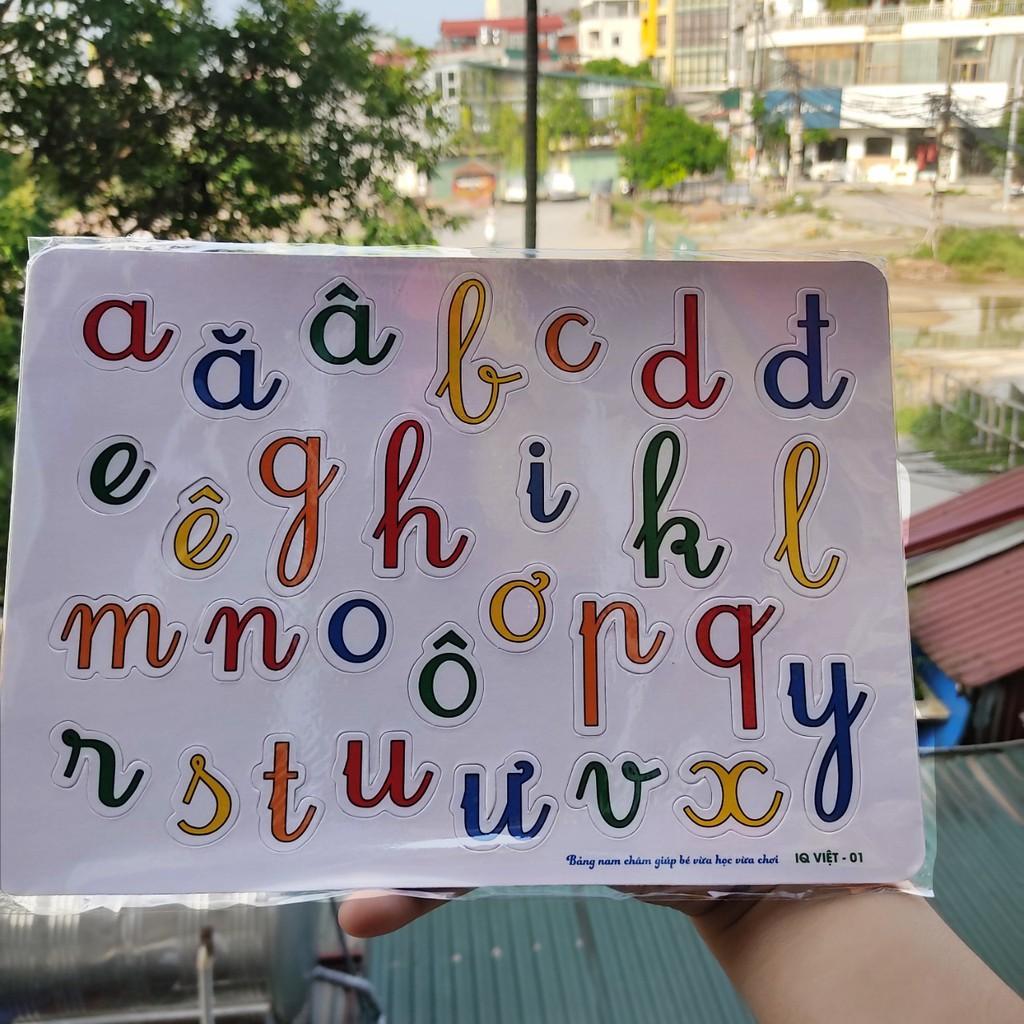 a ă â b c d đ
e ê g h i k l
m n o ô ơ p q
r s t u ư v x y
Bảng nam châm giúp bé vừa học vừa chơi IQ VIỆT - 01